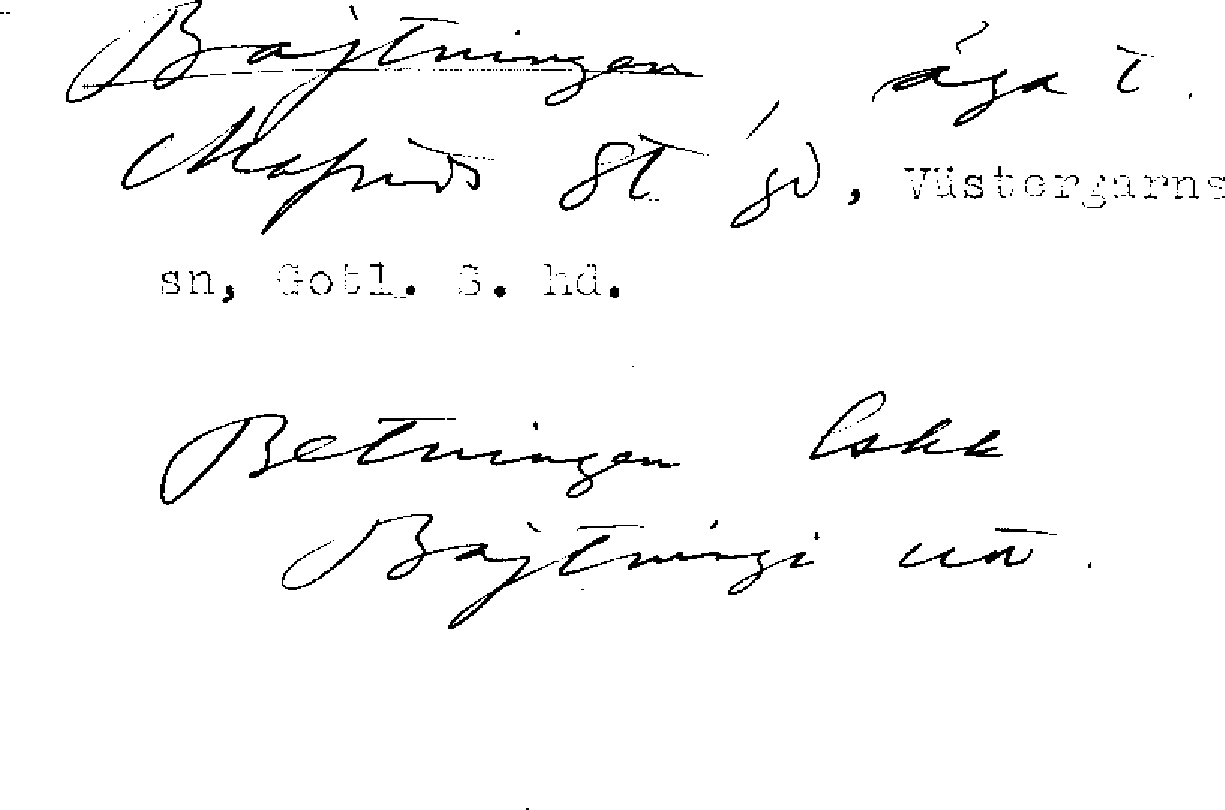 Bajtningen äga t.
Mafrids St gd, Västergarns
sn, Gotl. S. hd.
Betningen lskk
Bajtningi utt.